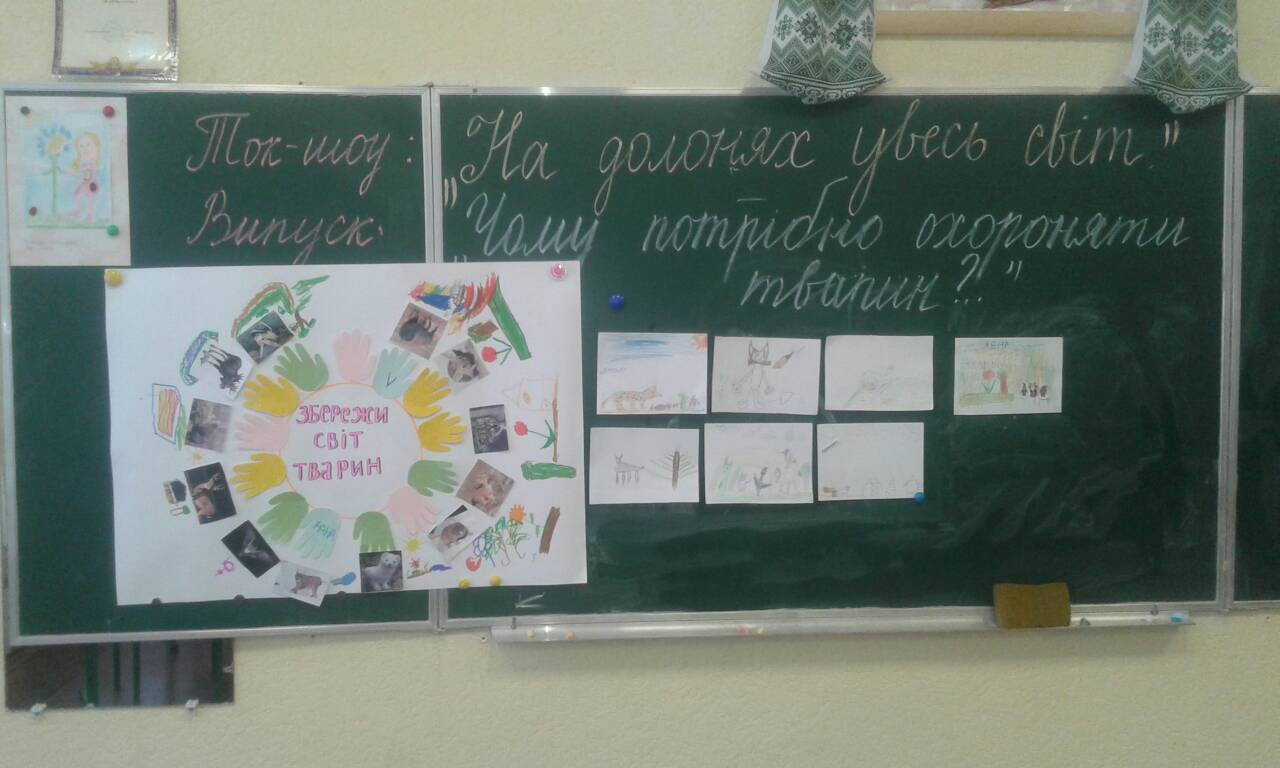 Ток-шоу: "На долонях увесь світ."
Випуск: "Чому потрібно охороняти
тварин?.."
ЗБЕРЕЖИ
СВІТ
ТВАРИН